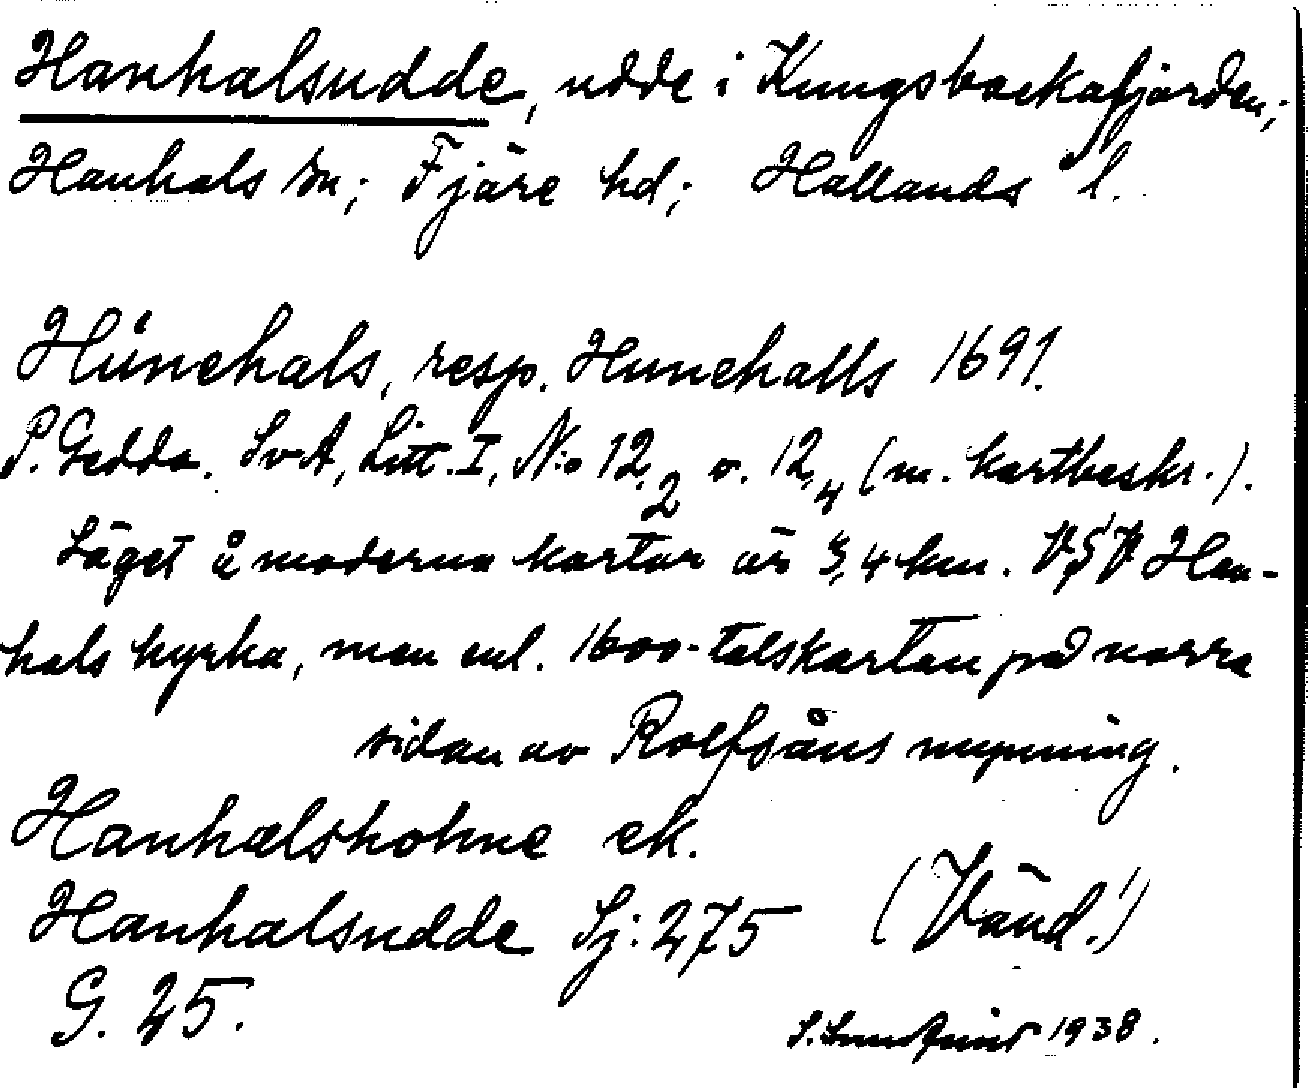 Hanhalsudde, udde i Kungsbackafjärden;
Hanhals sn; Fjäre hd; Hallands l.
Hünehals, resp. Hunehalls 1691.
P. Gedda. SvA, Litt. I, N:o 12,2 o. 12,4 (m. kartbeskr.).
Läget å moderna kartor är 3,4 km. VSV Han-
hals kyrka, men enl. 1600-talskartan på norra
sidan av Rolfsåns mynning.
Hanhalsholme ek.
Hanhalsudde Sj: 275 (Vänd!)
G. 25.
S. Lundquist 1938.